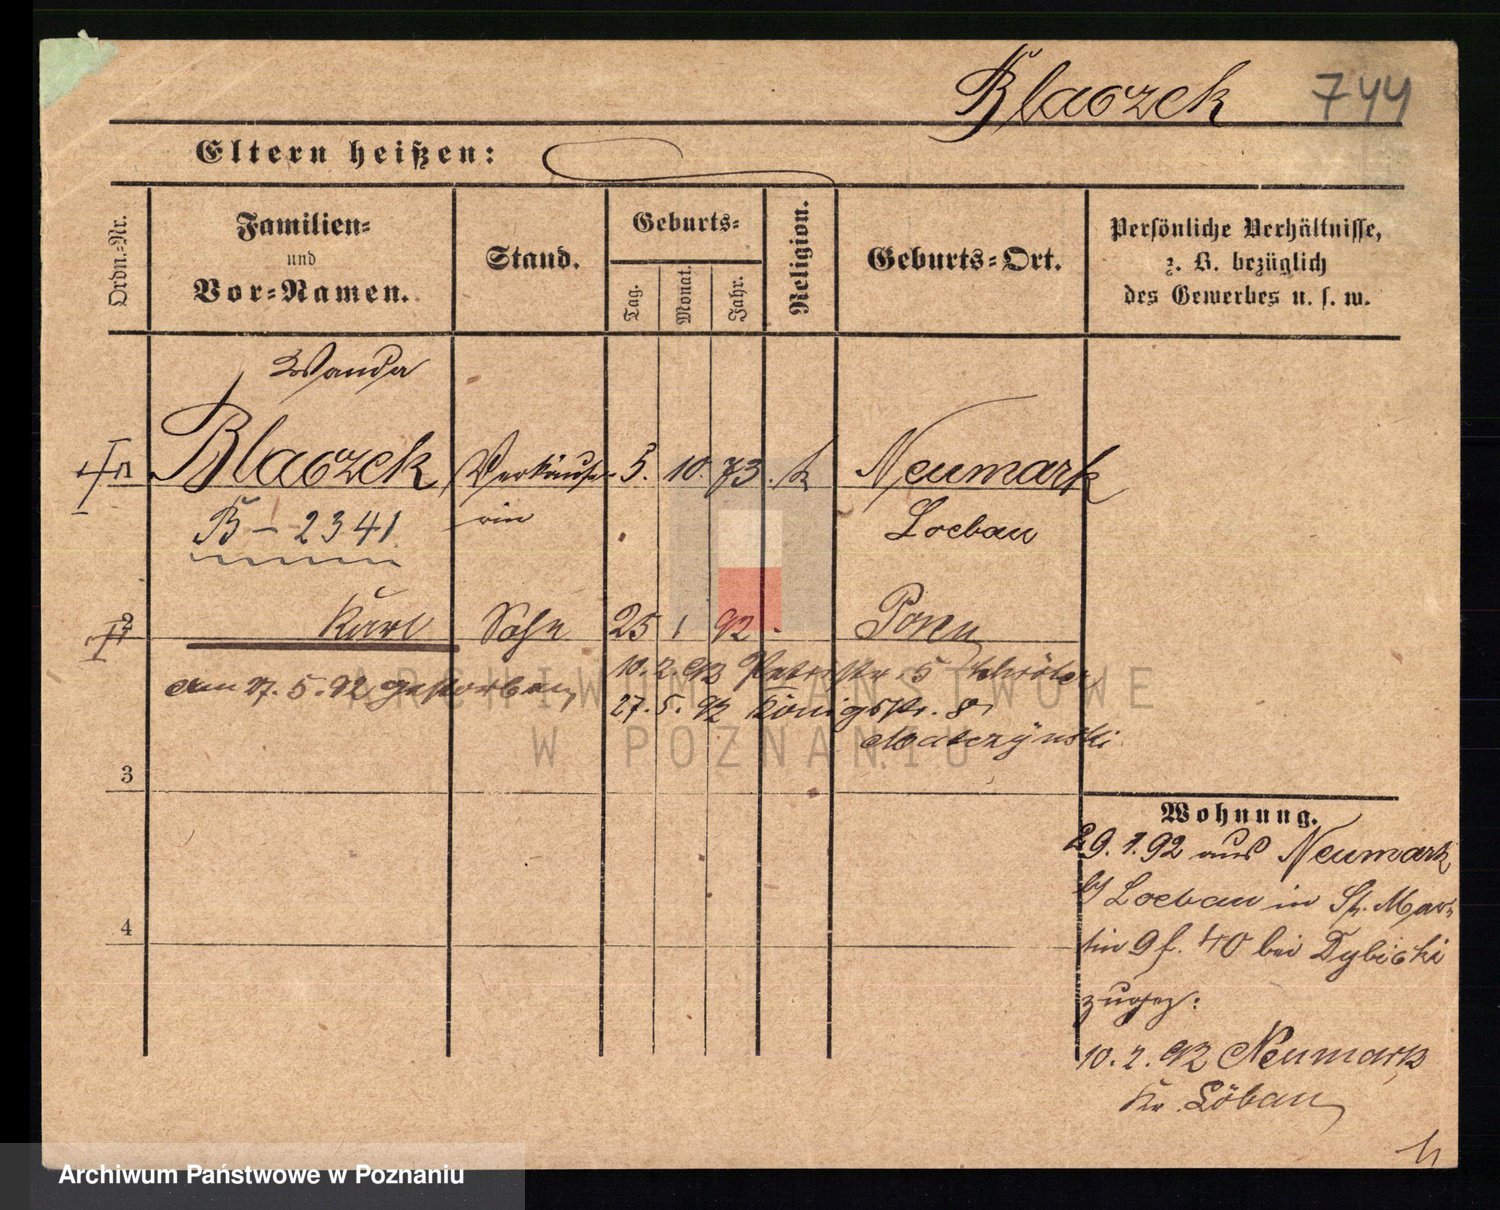 Blaczek 744
Eltern heißen:
Ordn.-Nr.
Familien-
und
Vor-Namen.
Stand.
Geburts-
Tag.
Monat.
Jahr.
Religion.
Geburts-Ort.
Persönliche Verhältnisse,
z. B. bezüglich
des Gewerbes u. s. w.
Wanda
1 Blaczek Verkäufe- 5. 10. 73. k Neumark
rin Loebau
B – 2341
2 Karl Sohn 25 1 92 Posen
am 27. 5. 92 gestorben
10. 2. 92 Petristr. 5 Schröter
27. 5. 92 Königsstr. 8
Matczyński
3
4
Wohnung.
29. 1. 92 aus Neumark
b/ Loebau in St. Mar-
tin 9 f. 40 bei Dybicki
zugez:
10. 2. 92 Neumark
Kr. Löbau
ARCHIWUM PAŃSTWOWE
W POZNANIU
Archiwum Państwowe w Poznaniu